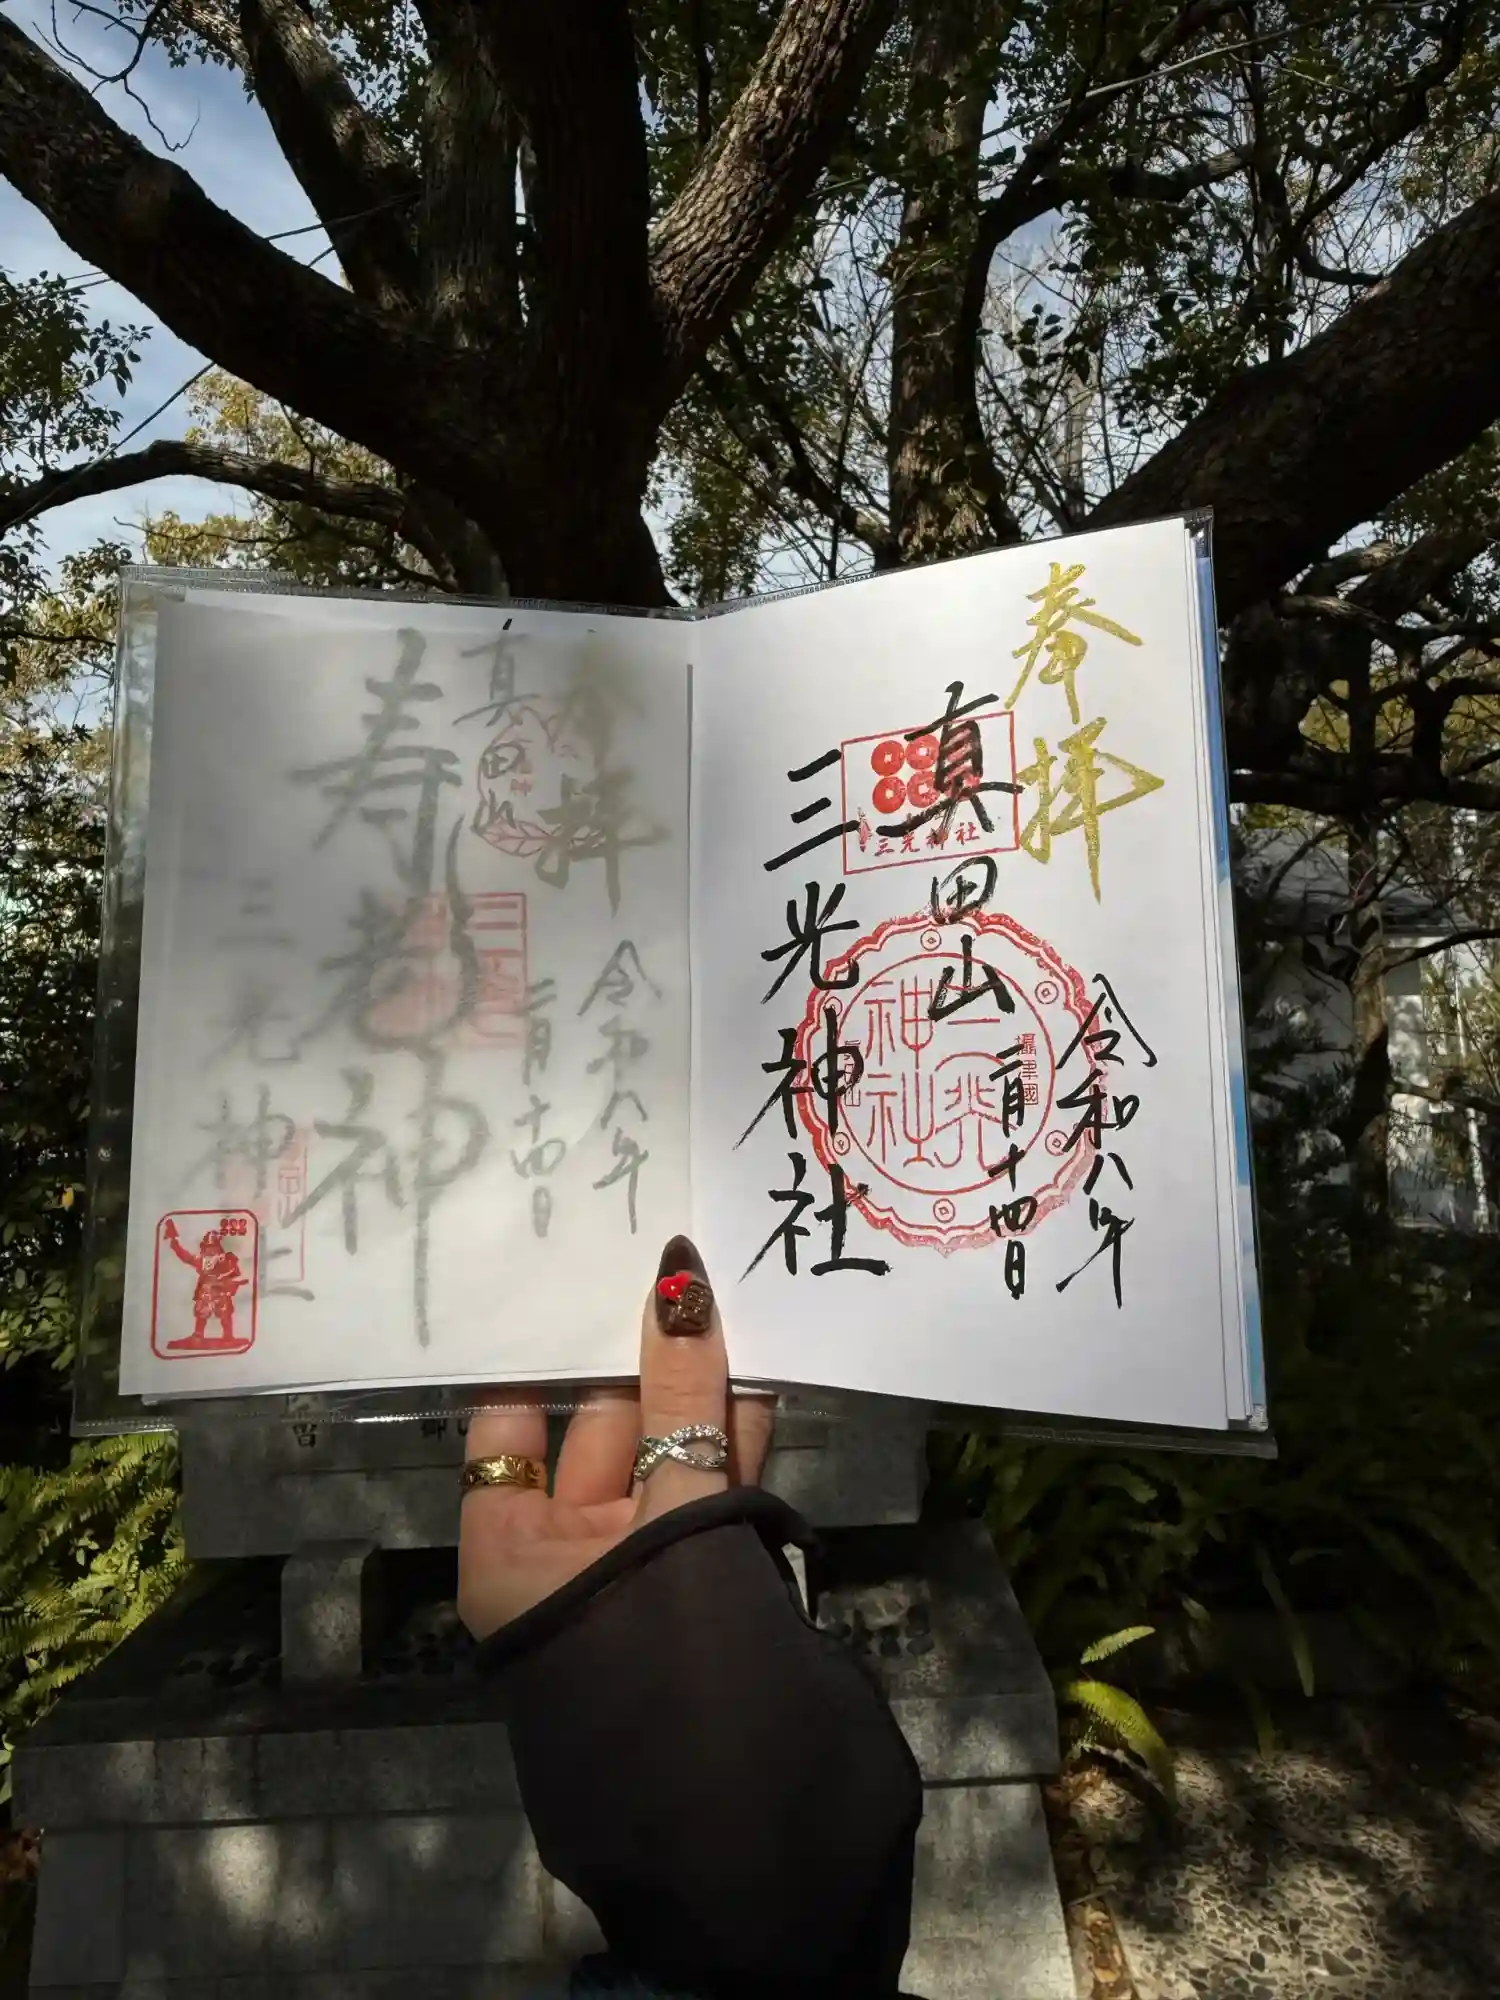 奉拝
真田山
三光神社
令和八年
二月十四日
三光神社
摂津國
三光
神社
奉拝
真田山
寿老神
三光神社
令和八年
二月十四日